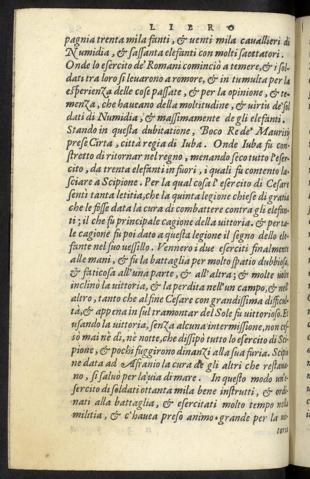 LIBRO
pagnia trenta mila fanti, & uenti mila cauallieri di
Numidia, & sassanta elefanti con molti saettatori.
Onde lo esercito de' Romani cominciò a temere, & i sol-
dati tra loro si leuarono a romore, & in tumulto per la
esperienza delle cose passate, & per la opinione, & te-
menza, che haueano della moltitudine, & uirtù de' sol
dati di Numidia, & massimamente de gli elefanti.
Stando in questa dubitatione, Boco Re de' Maurisij
prese Cirta, città regia di Iuba. Onde Iuba fu con-
stretto di ritornar nel regno, menando seco tutto l'eser-
cito, da trenta elefanti in fuori, i quali fu contento la-
sciare a Scipione. Per la qual cosa l'esercito di Cesare
sentì tanta letitia, che la quinta legione chiese di gratia
che le fusse data la cura di combattere contra gli elefan-
ti; il che fu principale cagione della uittoria. & per ta-
le cagione fu poi dato a questa legione il segno dello ele-
fante nel suo uessillo. Vennero i due eserciti finalmente
alle mani, & fu la battaglia per molto spatio dubbiosa,
& faticosa all'una parte, & all'altra; & molte uolte
inclinò la uittoria, & la perdita nell'un campo, & nel-
altro, tanto che al fine Cesare con grandissima difficul-
tà, & appena in sul tramontar del Sole fu uittorioso. Et
usando la uittoria, senza alcuna intermissione, non ces-
sò mai nè dì, nè notte, che dissipò tutto lo esercito di Sci-
pione, & pochi fuggirono dinanzi alla sua furia. Scipio
ne data ad Afranio la cura de gli altri che restaua-
no, si saluò per la uia di mare. In questo modo un'e-
sercito di soldati ottanta mila bene instrutti, & ordi-
nati alla battaglia, & esercitati molto tempo nella
militia, & c'hauea preso animo grande per la uit-
toria